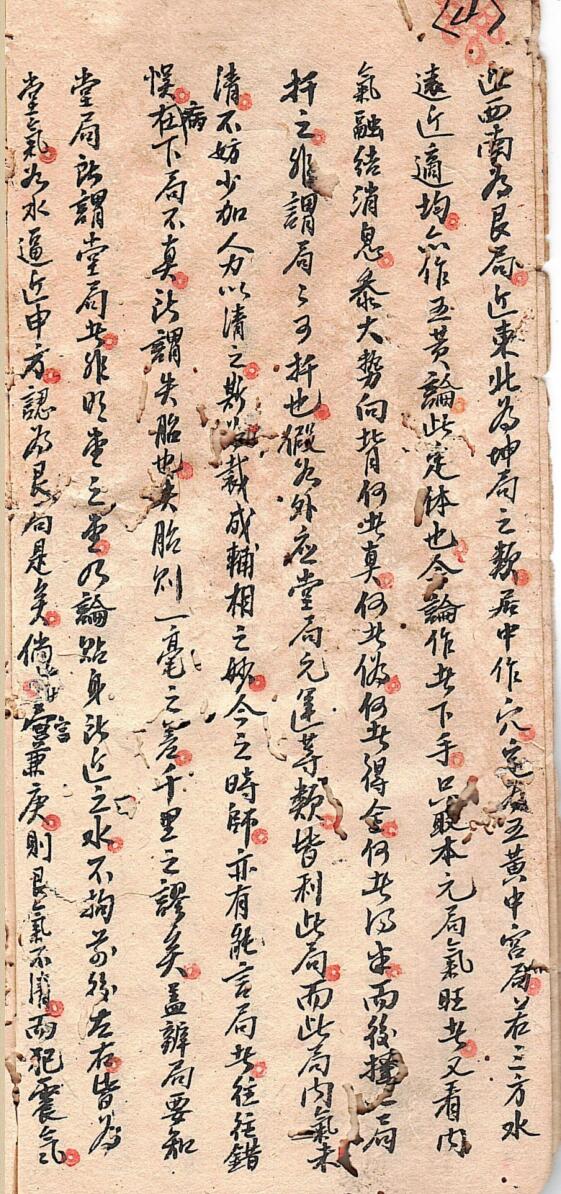 近西南為艮局近東北為坤局之類居中作穴定為五黃中宮局若三方水
遠近適均亦作五黃論此定体也今論作者下手只取本元局氣旺者又看内
氣融結消息叅大勢向背何者真何者偽何者得全何者得半而後擇一局
扦之非謂局之可扦也假若外应堂局元運等類皆利此局而此局内氣未
清不妨少加人力以清之斯為裁成輔相之妙今之時師亦有能言局者往往錯
悞病在下局不真所謂失胎也失胎則一毫之差千里之謬矣盖辨局要和
堂局所謂堂局者非明堂之堂乃論貼身所近之水不拘前後左右皆為
堂氣若水逼近申方認為艮局是矣倘宮兼庚則艮氣不清而犯震氣